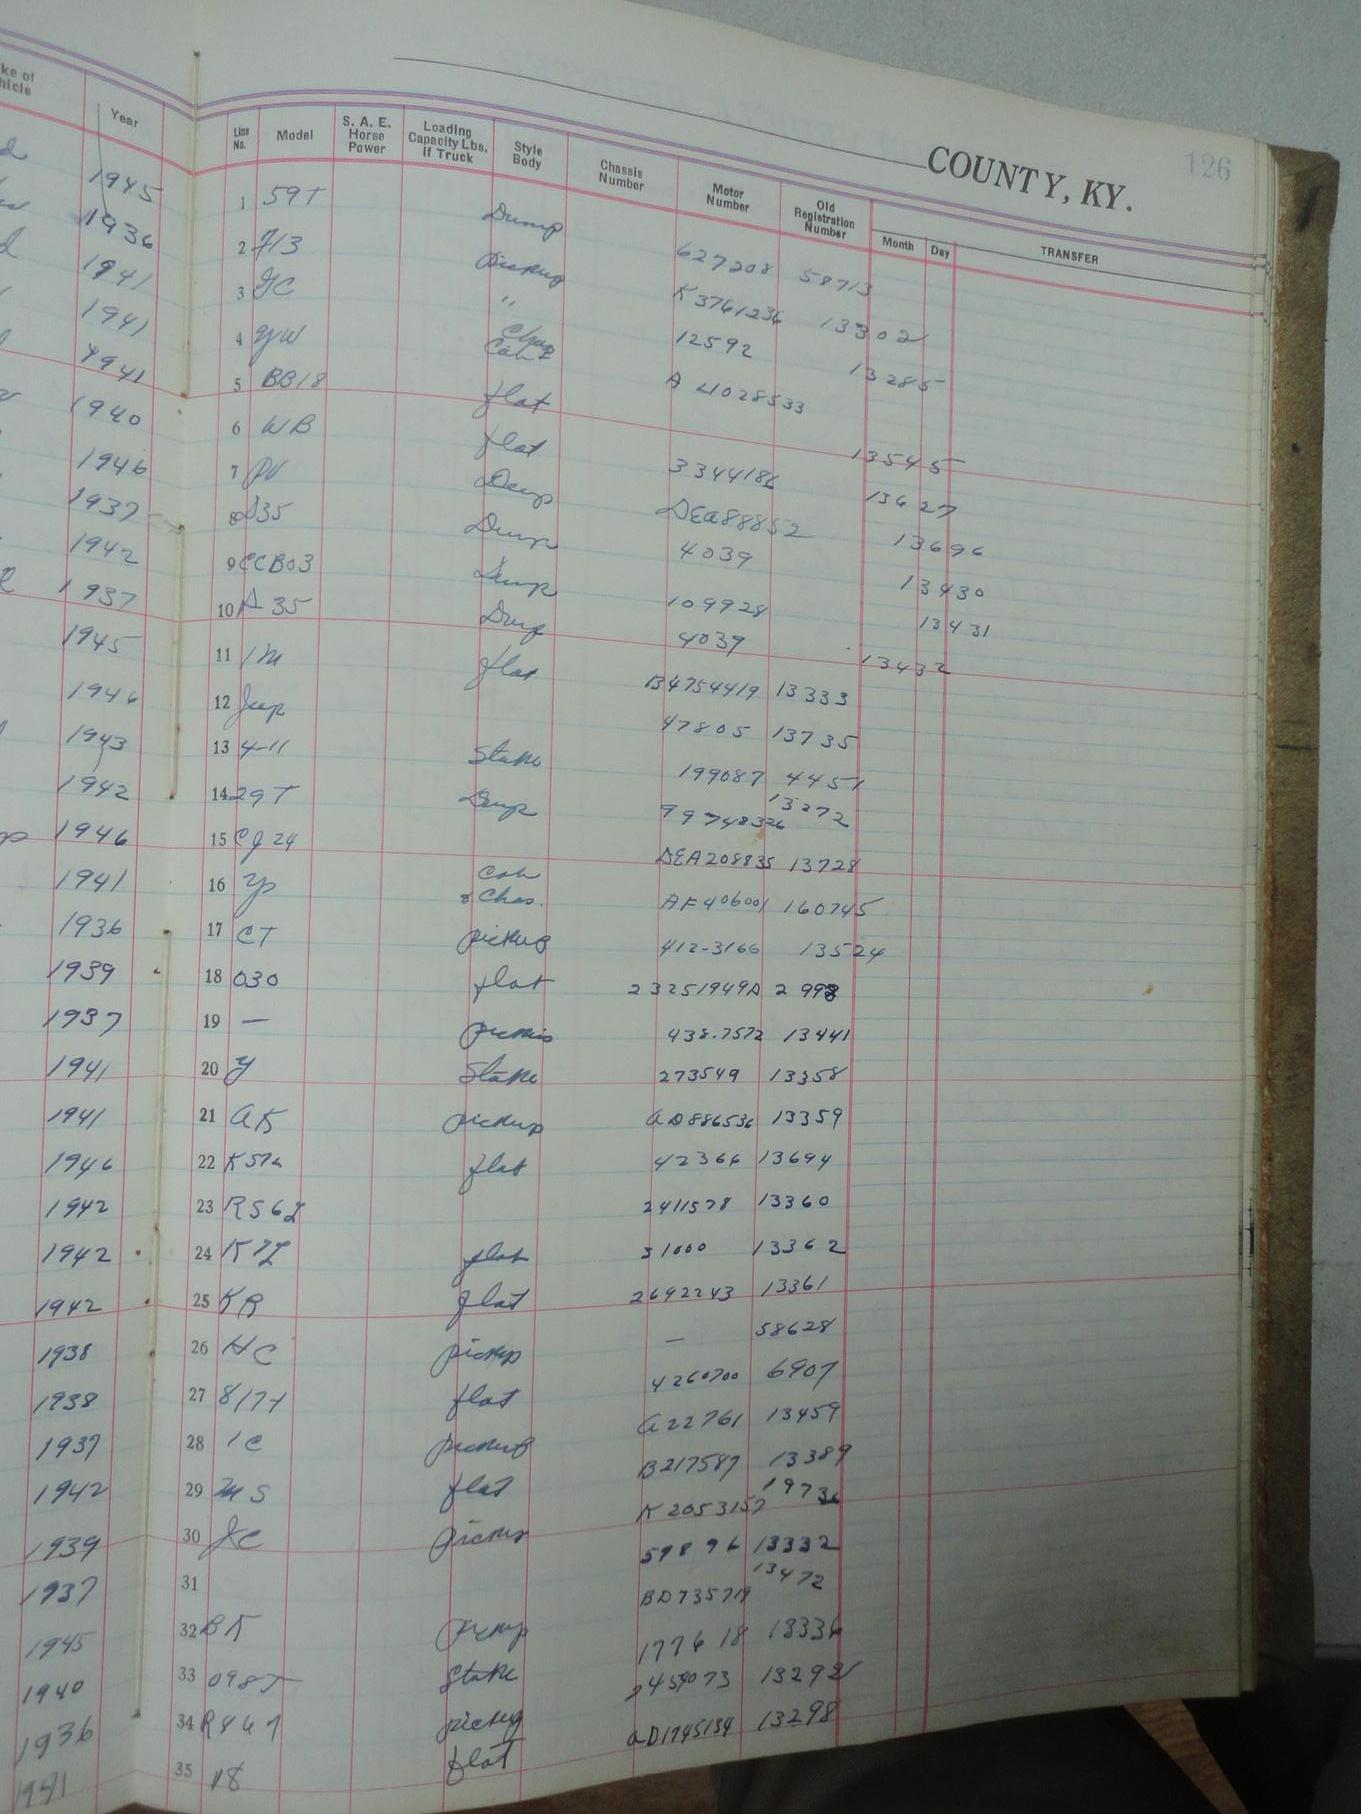 COUNTY, KY.
126
Year
Line No.
Model
S. A. E. Horse Power
Loading Capacity Lbs. if Truck
Style Body
Chassis Number
Motor Number
Old Registration Number
Month
Day
TRANSFER
1945 1 59T Dump 627208 58713
1936 2 713 pickup K3761236 13302
1941 3 " 12592 13285
1941 4 A 41028533
1941 5 BB18 flat 13545
1940 6 WB flat 3344186 13627
1946 7 Dump DEA88852 13696
1937 8 D35 Dump 4039 13430
1942 9 CCB03 Dump 109928 13431
1937 10 35 Dump 4039 13432
1945 11 1M flat B4754419 13333
1946 12 Jeep 47805 13735
1943 13 4-11 Stake 199087 4451
1942 14 29T Dump 99748326 13272
1946 15 CJ 24 DEA208835 13728
1941 16 Cab & Chas. AF406001 160745
1936 17 CT pickup 412-3166 13524
1939 18 030 flat 23251949A 2998
1937 19 — 438.7572 13441
1941 20 Y Stake 273549 13358
1941 21 AK pickup AD886536 13359
1946 22 flat 42366 13694
1942 23 2411578 13360
1942 24 flat 31000 13362
1942 25 KR flat 2692243 13361
1938 26 HC pickup — 58628
1938 27 flat 4260700 6907
1937 28 1C pickup A22761 13459
1942 29 MS flat B217587 13389
1939 30 JC pickup K2053157 19736
1937 31 59896 13332
1945 32 BK pickup BD735719 13472
1940 33 098T Stake 177618 13336
1936 34 pickup 13292
1941 35 18 flat AD1745134 13298